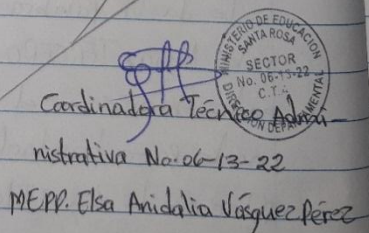 MINISTERIO DE EDUCACION
SANTA ROSA
SECTOR
No. 06-13-22
C.T.A
DIRECCION DEPARTAMENTAL
Coordinadora Técnico Admi-
nistrativa No. 06-13-22
MEPP. Elsa Anidalia Vásquez Pérez